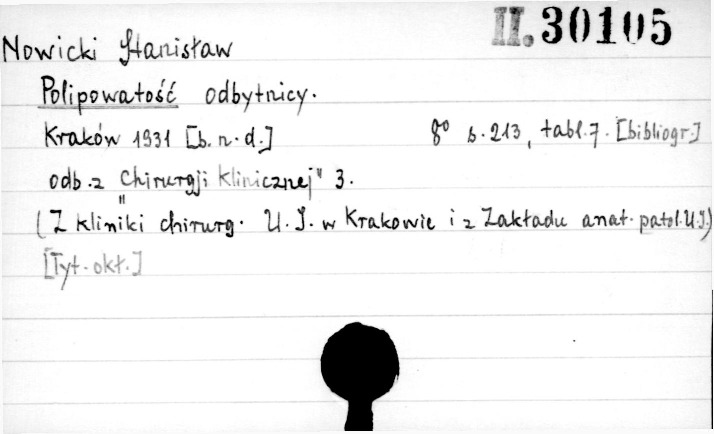 II. 30105
Nowicki Stanisław
Polipowatość odbytnicy.
Kraków 1931 [b. n. d.] 8° s. 213, tabl. 7. [bibliogr.]
odb. z „Chirurgji Klinicznej" 3.
(Z kliniki chirurg. U. J. w Krakowie i z Zakładu anat. patol. U. J.)
[Tyt. okł.]